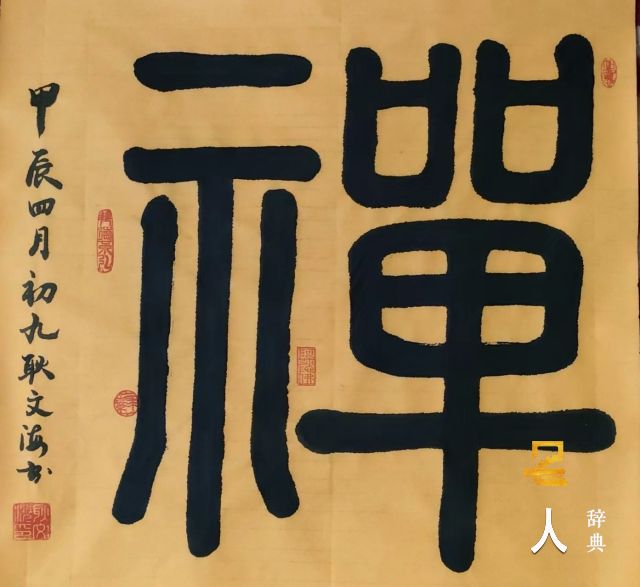 禪
甲辰四月初九耿文海书
名人
辞典